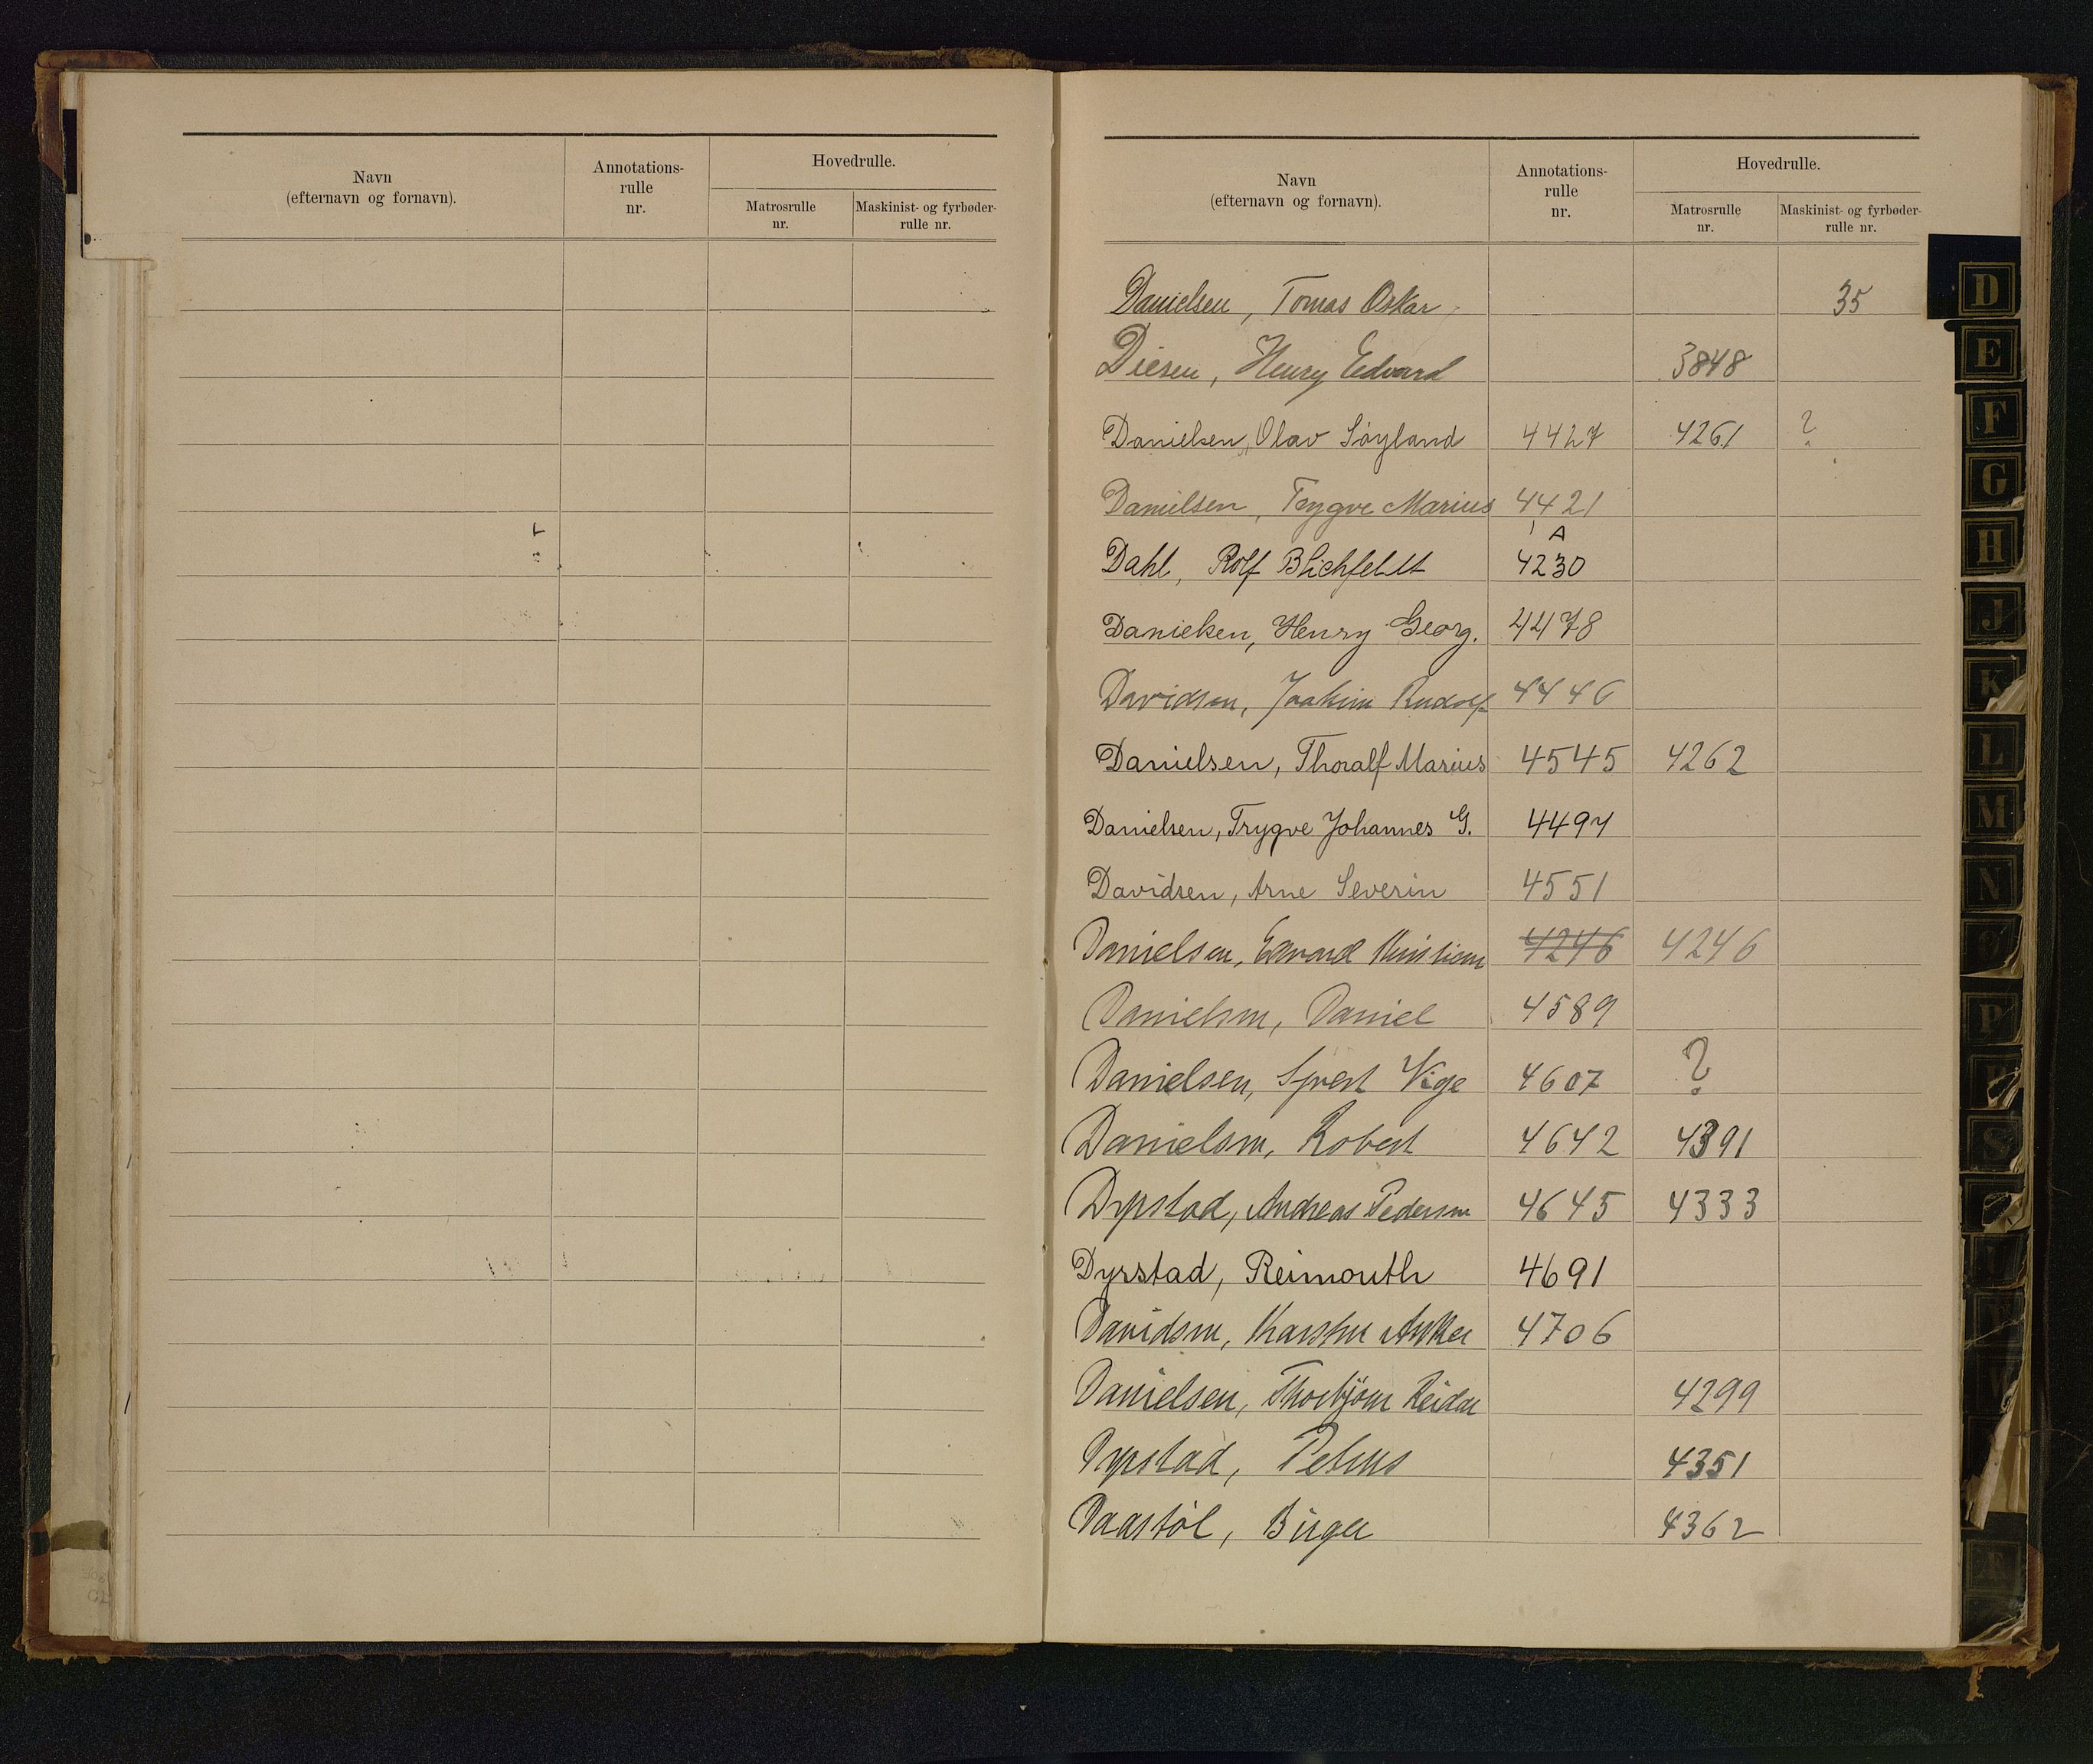 Navn
(efternavn og fornavn).
Annotations-
rulle
nr.
Hovedrulle.
Matrosrulle
nr.
Maskinist- og fyrbøder-
rulle nr.
Navn
(efternavn og fornavn).
Annotations-
rulle
nr.
Hovedrulle.
Matrosrulle
nr.
Maskinist- og fyrbøder-
rulle nr.
Danielsen, Tomas Oskar 35
Diesen, Henry Edvard 3848
Danielsen, Olav Søyland 4427 4261 ?
Danielsen, Trygve Marius 4421
A
Dahl, Rolf Blichfeldt 4230
Danielsen, Henry Georg. 4478
Davidsen, Joakim Rudolf 4446
Danielsen, Thoralf Marius 4545 4262
Danielsen, Trygve Johannes G. 4497
Davidsen, Arne Severin 4551
Danielsen, Edvard Kristian 4246 4246
Danielsen, Daniel 4589
Danielsen, Vige 4607 ?
Danielsen, Robert 4642 4391
Dypstad, Andreas Pedersen 4645 4333
Dyrstad, Reimouth 4691
Davidsen, Karsten Anker 4706
Danielsen, Thorbjørn Reidar 4299
Dypstad, Petrus 4351
Daastøl, Birger 4362
D
E
F
G
H
J
K
L
M
N
O
P
R
S